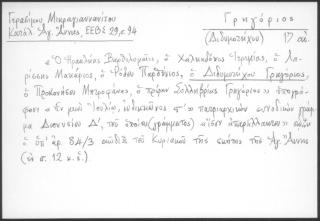 Γερασίμου Μικραγιαννανίτου
Κατάλ. Ἁγ. Ἄννης, ΕΕΒΣ 29, σ. 94
Γρηγόριος
(Διδυμοτείχου)
17 αἰ.
«Ὁ Ἡρακλείας Βαρθολομαῖος, ὁ Χαλκηδόνος Ἱερεμίας, ὁ Λα-
ρίσσης Μακάριος, ὁ Ῥόδου Παρθένιος, ὁ Διδυμοτείχου Γρηγόριος,
ὁ Προκονήσου Μητροφάνης, ὁ πρώην Σηλυβρίας Γρηγόριος» ὑπογρά-
φουν «Ἐν μηνὶ Ἰουλίῳ, ἰνδικτιῶνος» πατριαρχικὸν συνοδικὸν γράμ-
μα Διονυσίου Δ΄, τοῦ ὁποίου (γράμματος) «ἴσον ἀπαράλλακτον»
ὁ ὑπ' ἀρ. 84/3 κῶδιξ τοῦ Κυριακοῦ τῆς σκήτης τῆς Ἁγ. Ἄννης
(ἐν σ. 12 κ.ἑ.)